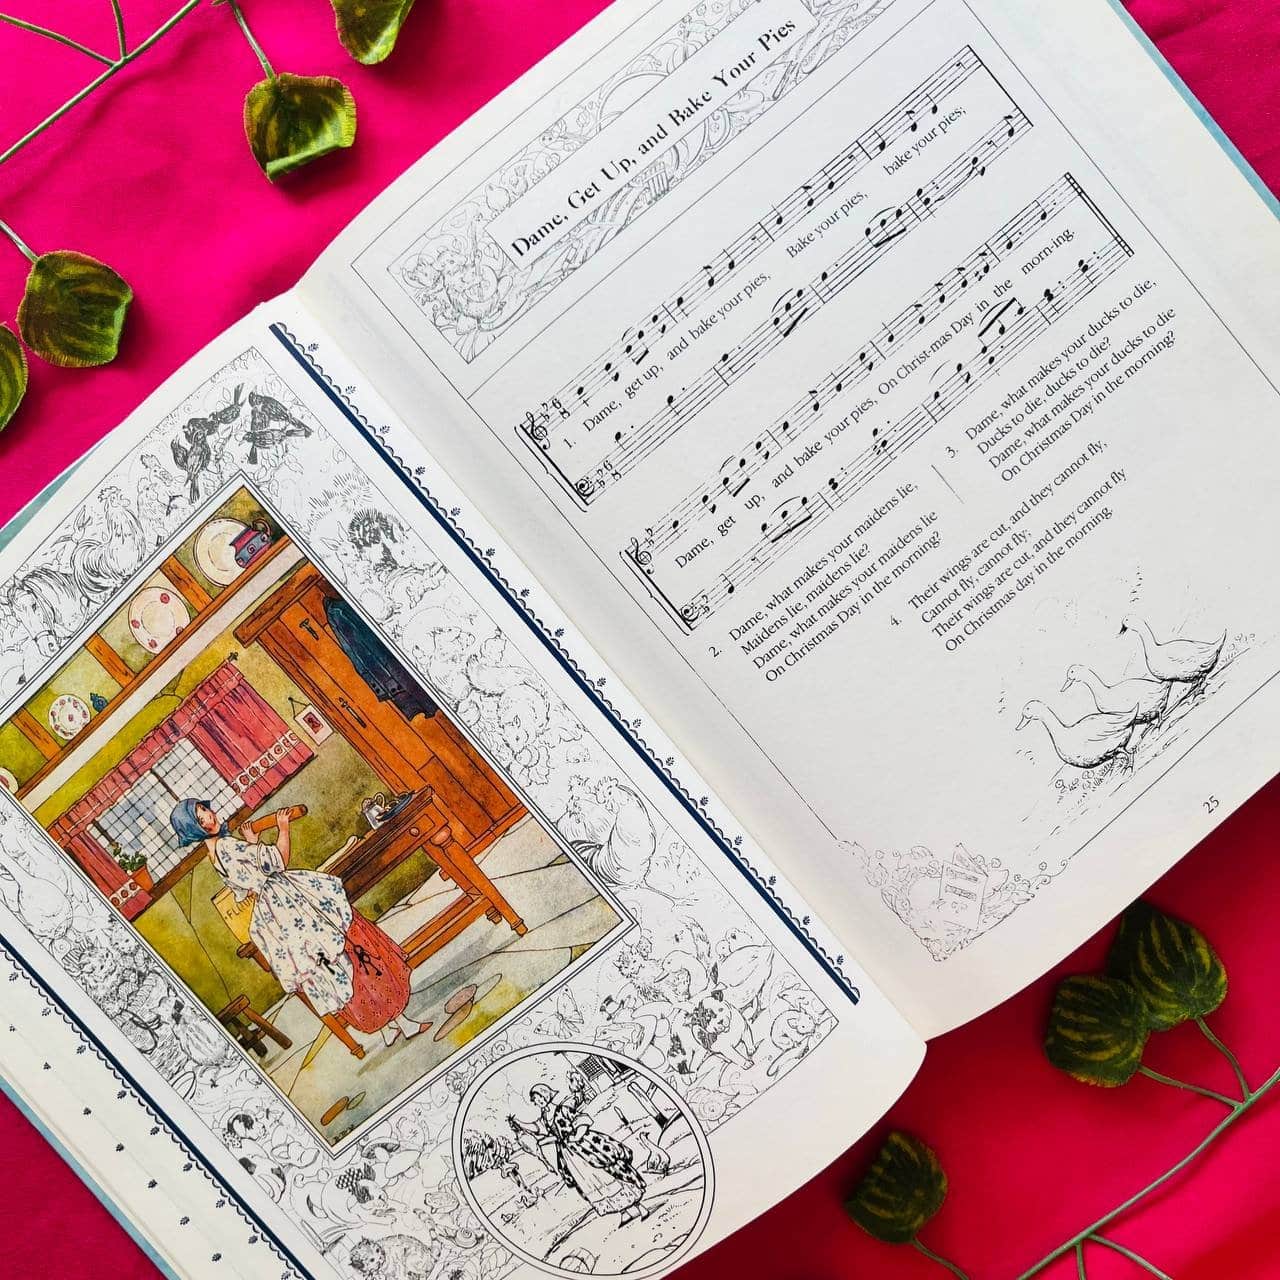 Dame, Get Up, and Bake Your Pies
1. Dame, get up, and bake your pies, Bake your pies, bake your pies;
Dame, get up, and bake your pies, On Christ-mas Day in the morn-ing.
2. Dame, what makes your maidens lie,
Maidens lie, maidens lie?
Dame, what makes your maidens lie
On Christmas Day in the morning?
3. Dame, what makes your ducks to die,
Ducks to die, ducks to die?
Dame, what makes your ducks to die
On Christmas Day in the morning?
4. Their wings are cut, and they cannot fly,
Cannot fly, cannot fly,
Their wings are cut, and they cannot fly
On Christmas day in the morning.
25
FLOUR